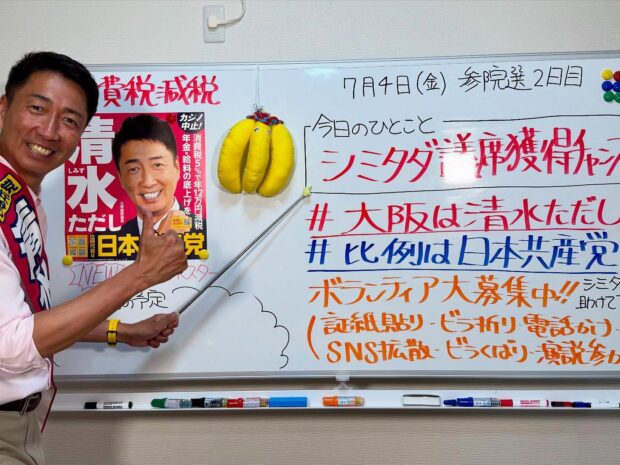 費税減税
7月4日(金) 参院選2日目
今日のひとこと
シミタダ議席獲得チャンス
# 大阪は清水ただし
# 比例は日本共産党
ボランティア大募集中!!
シミタ
助けて
(証紙貼り・ビラ折り・電話かけ・
SNS拡散・ビラくばり・演説参か
カジノ
中止!
消費税5%で年12万円減税
年金・給料の底上げを
清水
しみず
ただし
日本 党
NEW スター
予定